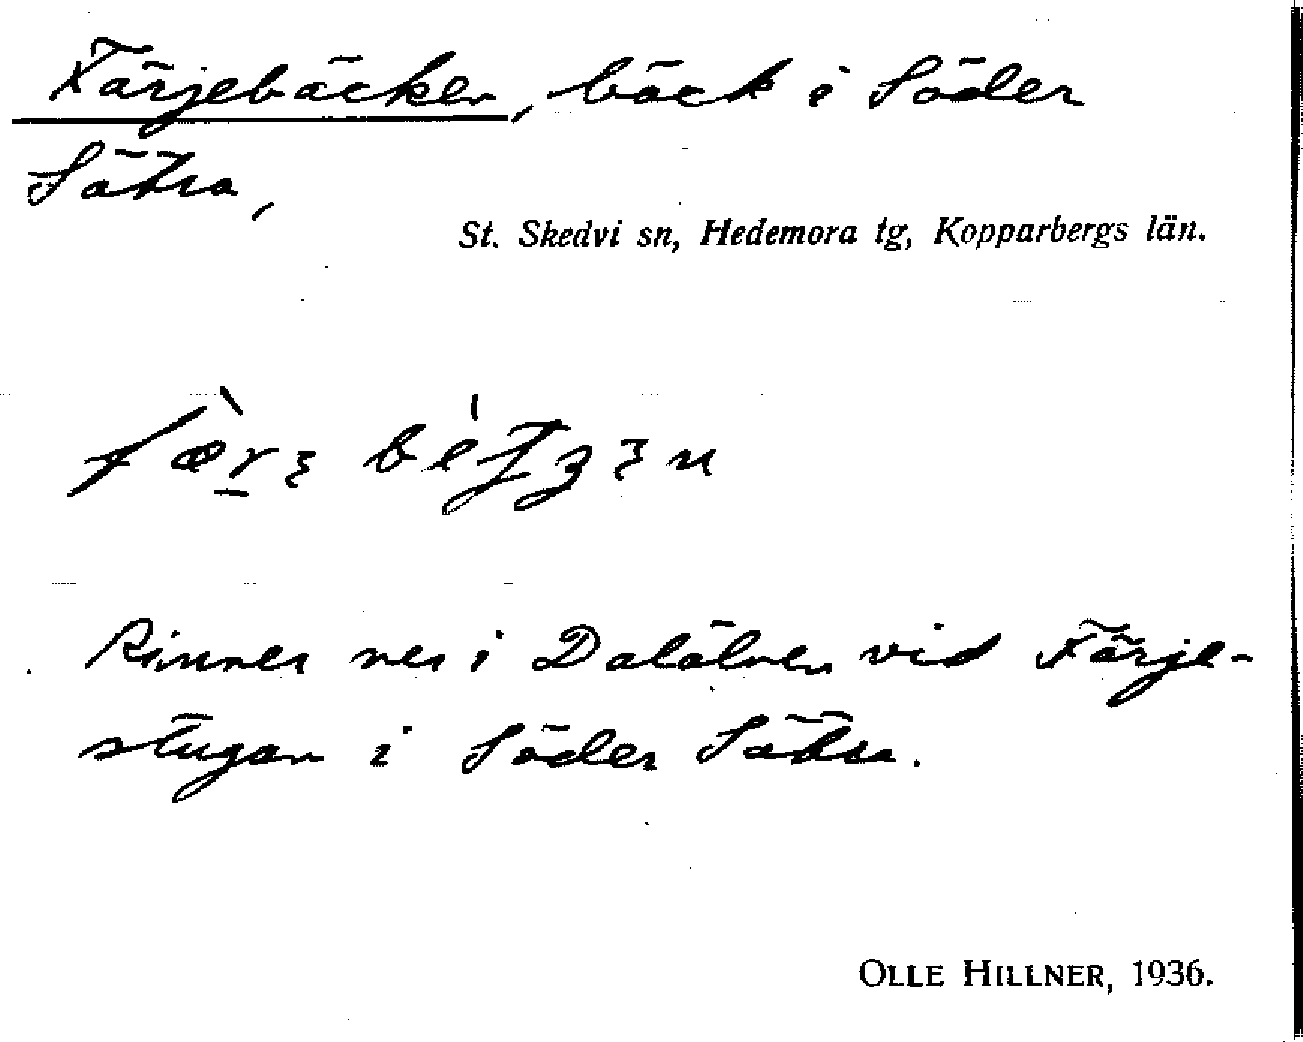 Färjebäcken, bäck i Söder
Sätra,
St. Skedvi sn, Hedemora tg, Kopparbergs län.
Rinner ner i Dalälven vid Färje-
stugan i Söder Sätra.
OLLE HILLNER, 1936.